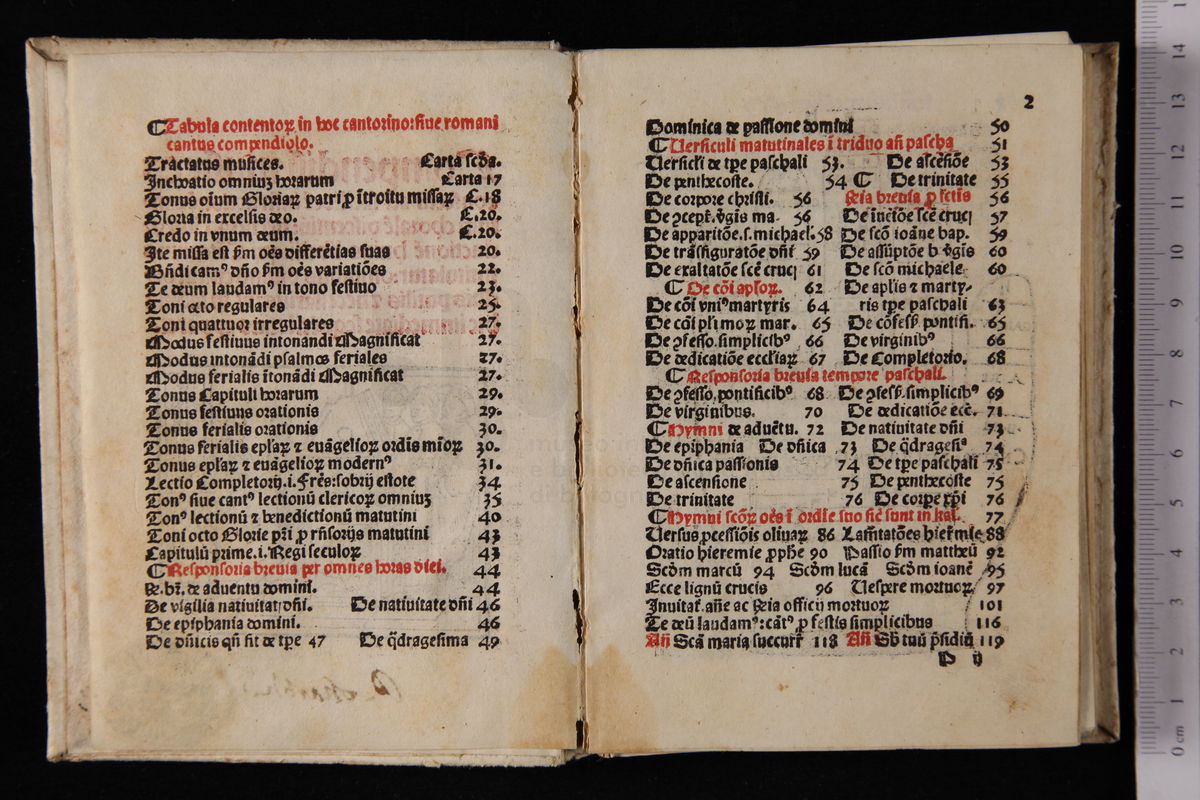 Tabula contentoꝝ in hoc cantorino: siue romani
cantus compendiolo.
Tractatus musices. Carta scḋa.
Inchoatio omniuʒ horarum Carta 17
Tonus oīum Gloriaꝝ patri ꝓ ītroitu missaꝝ C. 18
Gloria in excelsis deo. C. 20.
Credo in vnum deum. C. 20.
Ite missa est ẜm oēs differētias suas 20.
Bn̄dicamꝰ dn̄o ẜm oēs variatiōes 22.
Te deum laudamꝰ in tono festiuo 23.
Toni octo regulares 25.
Toni quattuor irregulares 27.
Modus festiuus intonandi Magnificat 27.
Modus intonādi psalmos feriales 27.
Modus ferialis ītonādi Magnificat 27.
Tonus Capituli horarum 29.
Tonus festiuus orationis 29.
Tonus ferialis orationis 30.
Tonus ferialis epl'aꝝ ⁊ euāgelioꝝ ordīs mīoꝝ 30.
Tonus epl'aꝝ ⁊ euāgelioꝝ modernꝰ 31.
Lectio Completorij .i. Frēs: sobrij estote 34
Tonꝰ siue cantꝰ lectionū clericoꝝ omniuʒ 35
Tonꝰ lectionū ⁊ benedictionū matutini 40
Toni octo Glorie pr̄i ꝓ rn̄sorijs matutini 43
Capitulū prime .i. Regi seculoꝝ 43
Responsoria breuia per omnes horas diei. 44
℟. br̄. de aduentu domini. 44
De vigilia natiuitat dn̄i. De natiuitate dn̄i 46
De epiphania domini. 46
De dn̄icis qn̄ fit de tp̄e 47 De q̄dragesima 49
2
Dominica de passione domini 50
Uersiculi matutinales ī triduo añ pascha 51
Uersicl'i de tp̄e paschali 53. De ascēsiōe 53
De penthecoste. 54 De trinitate 55
De corpore christi. 56 R̄ia breuia ꝓ sctīs 56
De ꝯcept. v̄gis ma. 56 De īuētiōe scē crucꝭ 57
De apparitōe .s. michael. 58 De scō ioāne bap. 59
De trāsfiguratōe dn̄i 59 De assūptōe b. v̄gis 60
De exaltatōe scē crucꝭ 61 De scō michaele 60
De cōi apl'oꝝ. 62 De apl'is ⁊ marty-
De cōi vniꝰ martyris 64 ris tp̄e paschali 63
De cōi pl'imoꝝ mar. 65 De cōfess. pontifi. 65
De ꝯfesso. simplicibꝰ 66 De virginibꝰ 66
De dedicatiōe eccl'iaꝝ 67 De Completorio. 68
Responsoria breuia tempore paschali.
De ꝯfesso. pontificibꝰ 68 De ꝯfess. simplicibꝰ 69
De virginibus. 70 De dedicatiōe ecc̄. 71
Hymni de aduētu. 72 De natiuitate dn̄i 73
De epiphania De dn̄ica 73 De q̄dragesiᵃ 74
De dn̄ica passionis 74 De tp̄e paschali 75
De ascensione 75 De penthecoste 75
De trinitate 76 De corpe xp̄i 76
Hymni scōꝝ oēs ī ordīe suo sic̄ sunt in kal. 77
Uersus ꝓcessiōis oliuaꝝ 86 Lam̄tatōes hier̄mie 88
Oratio hieremie ꝓphe 90 Passio ẜm mattheū 92
Scḋm marcū 94 Scḋm lucā Scḋm ioanē 95
Ecce lignū crucis 96 Uespere mortuoꝝ 97
Inuitat. añe ac R̄ia officij mortuoꝝ 101
Te deū laudamꝰ: cātꝰ ꝓ festis simplicibus 116
Añ Scā maria succurr̄ 118 Añ Sb̄ tuū p̄sidiū 119
P ij